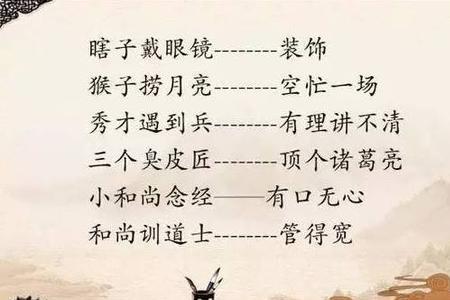 瞎子戴眼镜--------装饰
猴子捞月亮--------空忙一场
秀才遇到兵--------有理讲不清
三个臭皮匠--------顶个诸葛亮
小和尚念经——有口无心
和尚训道士--------管得宽